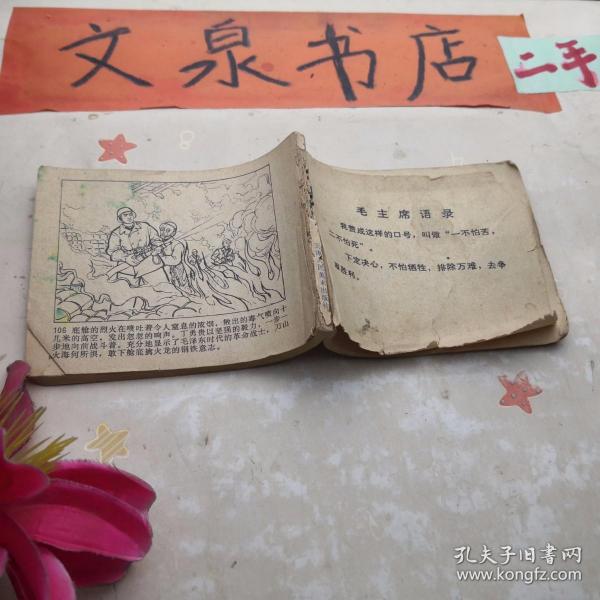 文泉书店
二手
毛主席语录
我赞成这样的口号，叫做“一不怕苦，
二不怕死”。
下定决心，不怕牺牲，排除万难，去争
取胜利。
106 底舱的烈火在喷吐着令人窒息的浓烟，锹出的毒气喷向十
几米的高空，发出忽忽的响声。丁勇贵以坚强的毅力，一步一
步地向前战斗着。充分地显示了毛泽东时代的革命战士，刀山
火海何所惧，敢下舱底擒火龙的钢铁意志。
孔夫子旧书网
www.kongfz.com